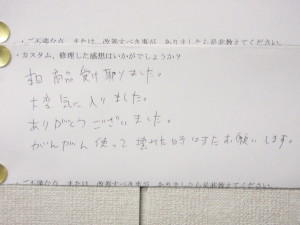 ・ご不満な点、または、改善すべき事が、ありましたら是非教えてください。
・カスタム、修理した感想はいかがでしょうか？
本日 商品 受け取りました。
大変 気に入りました。
ありがとうございました。
がんがん使って 壊れた時はまたお願いします。
・ご不満な点、または、改善すべき事が、ありましたら是非教えてください。